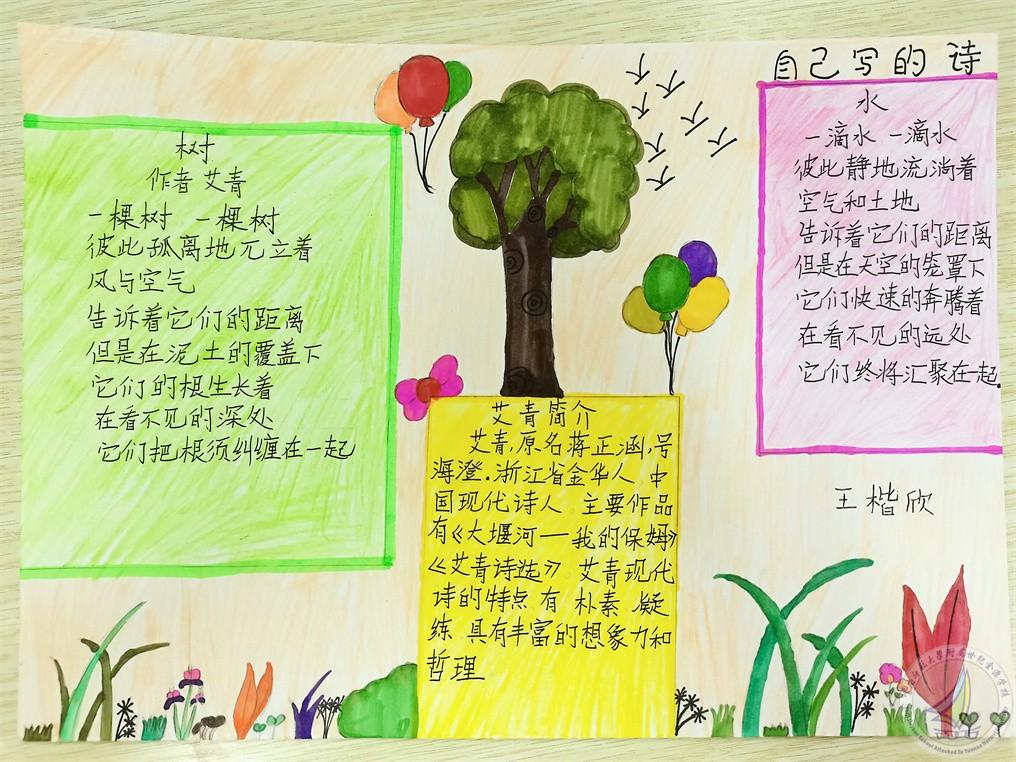 树
作者 艾青
一棵树 一棵树
彼此孤离地兀立着
风与空气
告诉着它们的距离
但是在泥土的覆盖下
它们的根生长着
在看不见的深处
它们把根须纠缠在一起
艾青简介
艾青,原名蒋正涵,号
海澄.浙江省金华人 中
国现代诗人 主要作品
有《大堰河一一我的保姆》
《艾青诗选》 艾青现代
诗的特点 有 朴素 凝
练 具有丰富的想象力和
哲理
自己写的诗
水
一滴水 一滴水
彼此静地流淌着
空气和土地
告诉着它们的距离
但是在天空的笼罩下
它们快速的奔腾着
在看不见的远处
它们终将汇聚在一起.
王楷欣